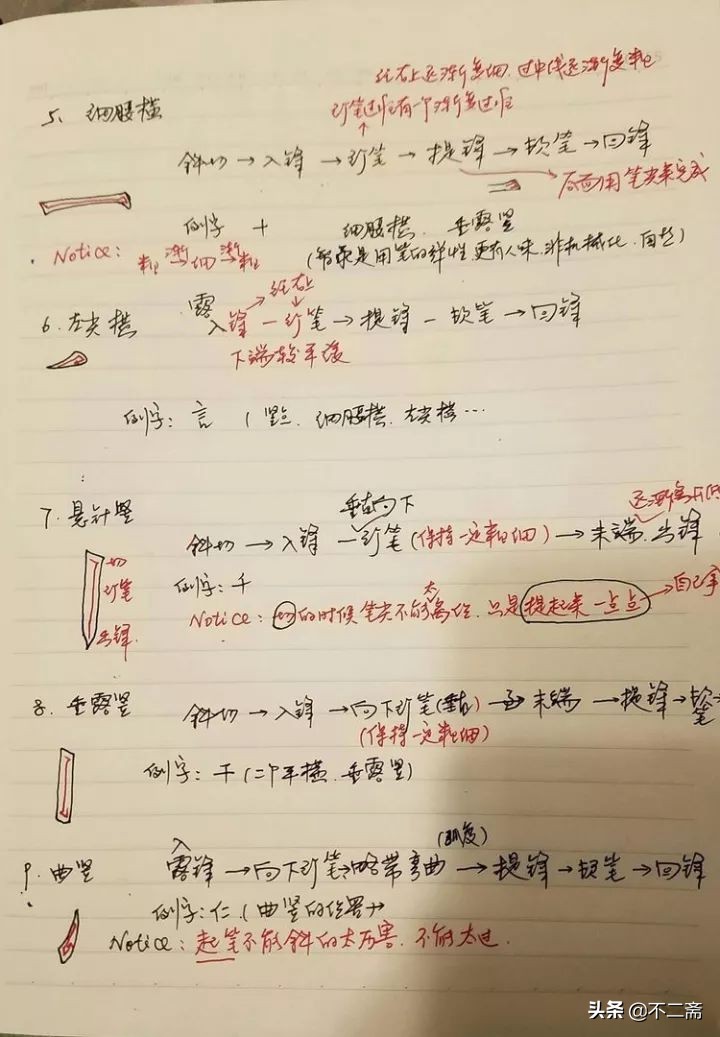 往右上逐渐变细,过中线逐渐变粗
行笔过程有一个渐变过程
5、细腰横
斜切→入锋→行笔→提锋→顿笔→回锋
后面用笔尖来完成
例字 十 细腰横、垂露竖
Notice: 粗渐细渐粗
(智永是用笔的弹性,更有人味,非机械化,自然)
往右上
6、左尖横 露入锋—行笔→提锋—顿笔→回锋
下端较平缓
例字:言(竖点、细腰横、左尖横…
垂直向下
7、悬针竖
斜切→入锋—行笔(保持一定粗细)→末端、出锋
切
行笔
出锋
例字:千
Notice:切的时候笔尖不能太离位,只是提起来一点点→自己
8、垂露竖 斜切→入锋→向下行笔(垂直)→末端→提锋→顿笔→
(保持一定粗细)
例字:干(二个平横、垂露竖)
(弧度)
9、曲竖 露入锋→向下行笔→略带弯曲→提锋→顿笔→回锋
例字:仁(曲竖的位置
Notice:起笔不能斜的太厉害,不能太过.
头条@不二斋